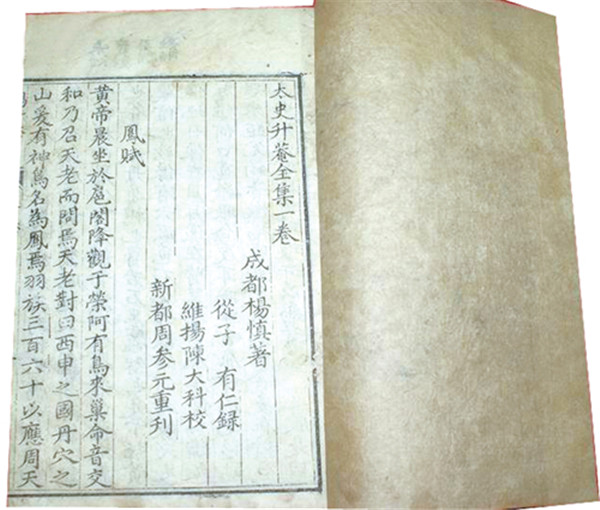 太史升菴全集一卷
成都楊慎著
從子 有仁録
維揚陳大科校
新都周參元重刊
鳳賦
黃帝晨坐於扈閣降觀于榮阿有鳥來巢命音交
和乃召天老而問焉天老對曰西申之國丹穴之
山爰有神鳥名為鳳焉羽族三百六十以應周天